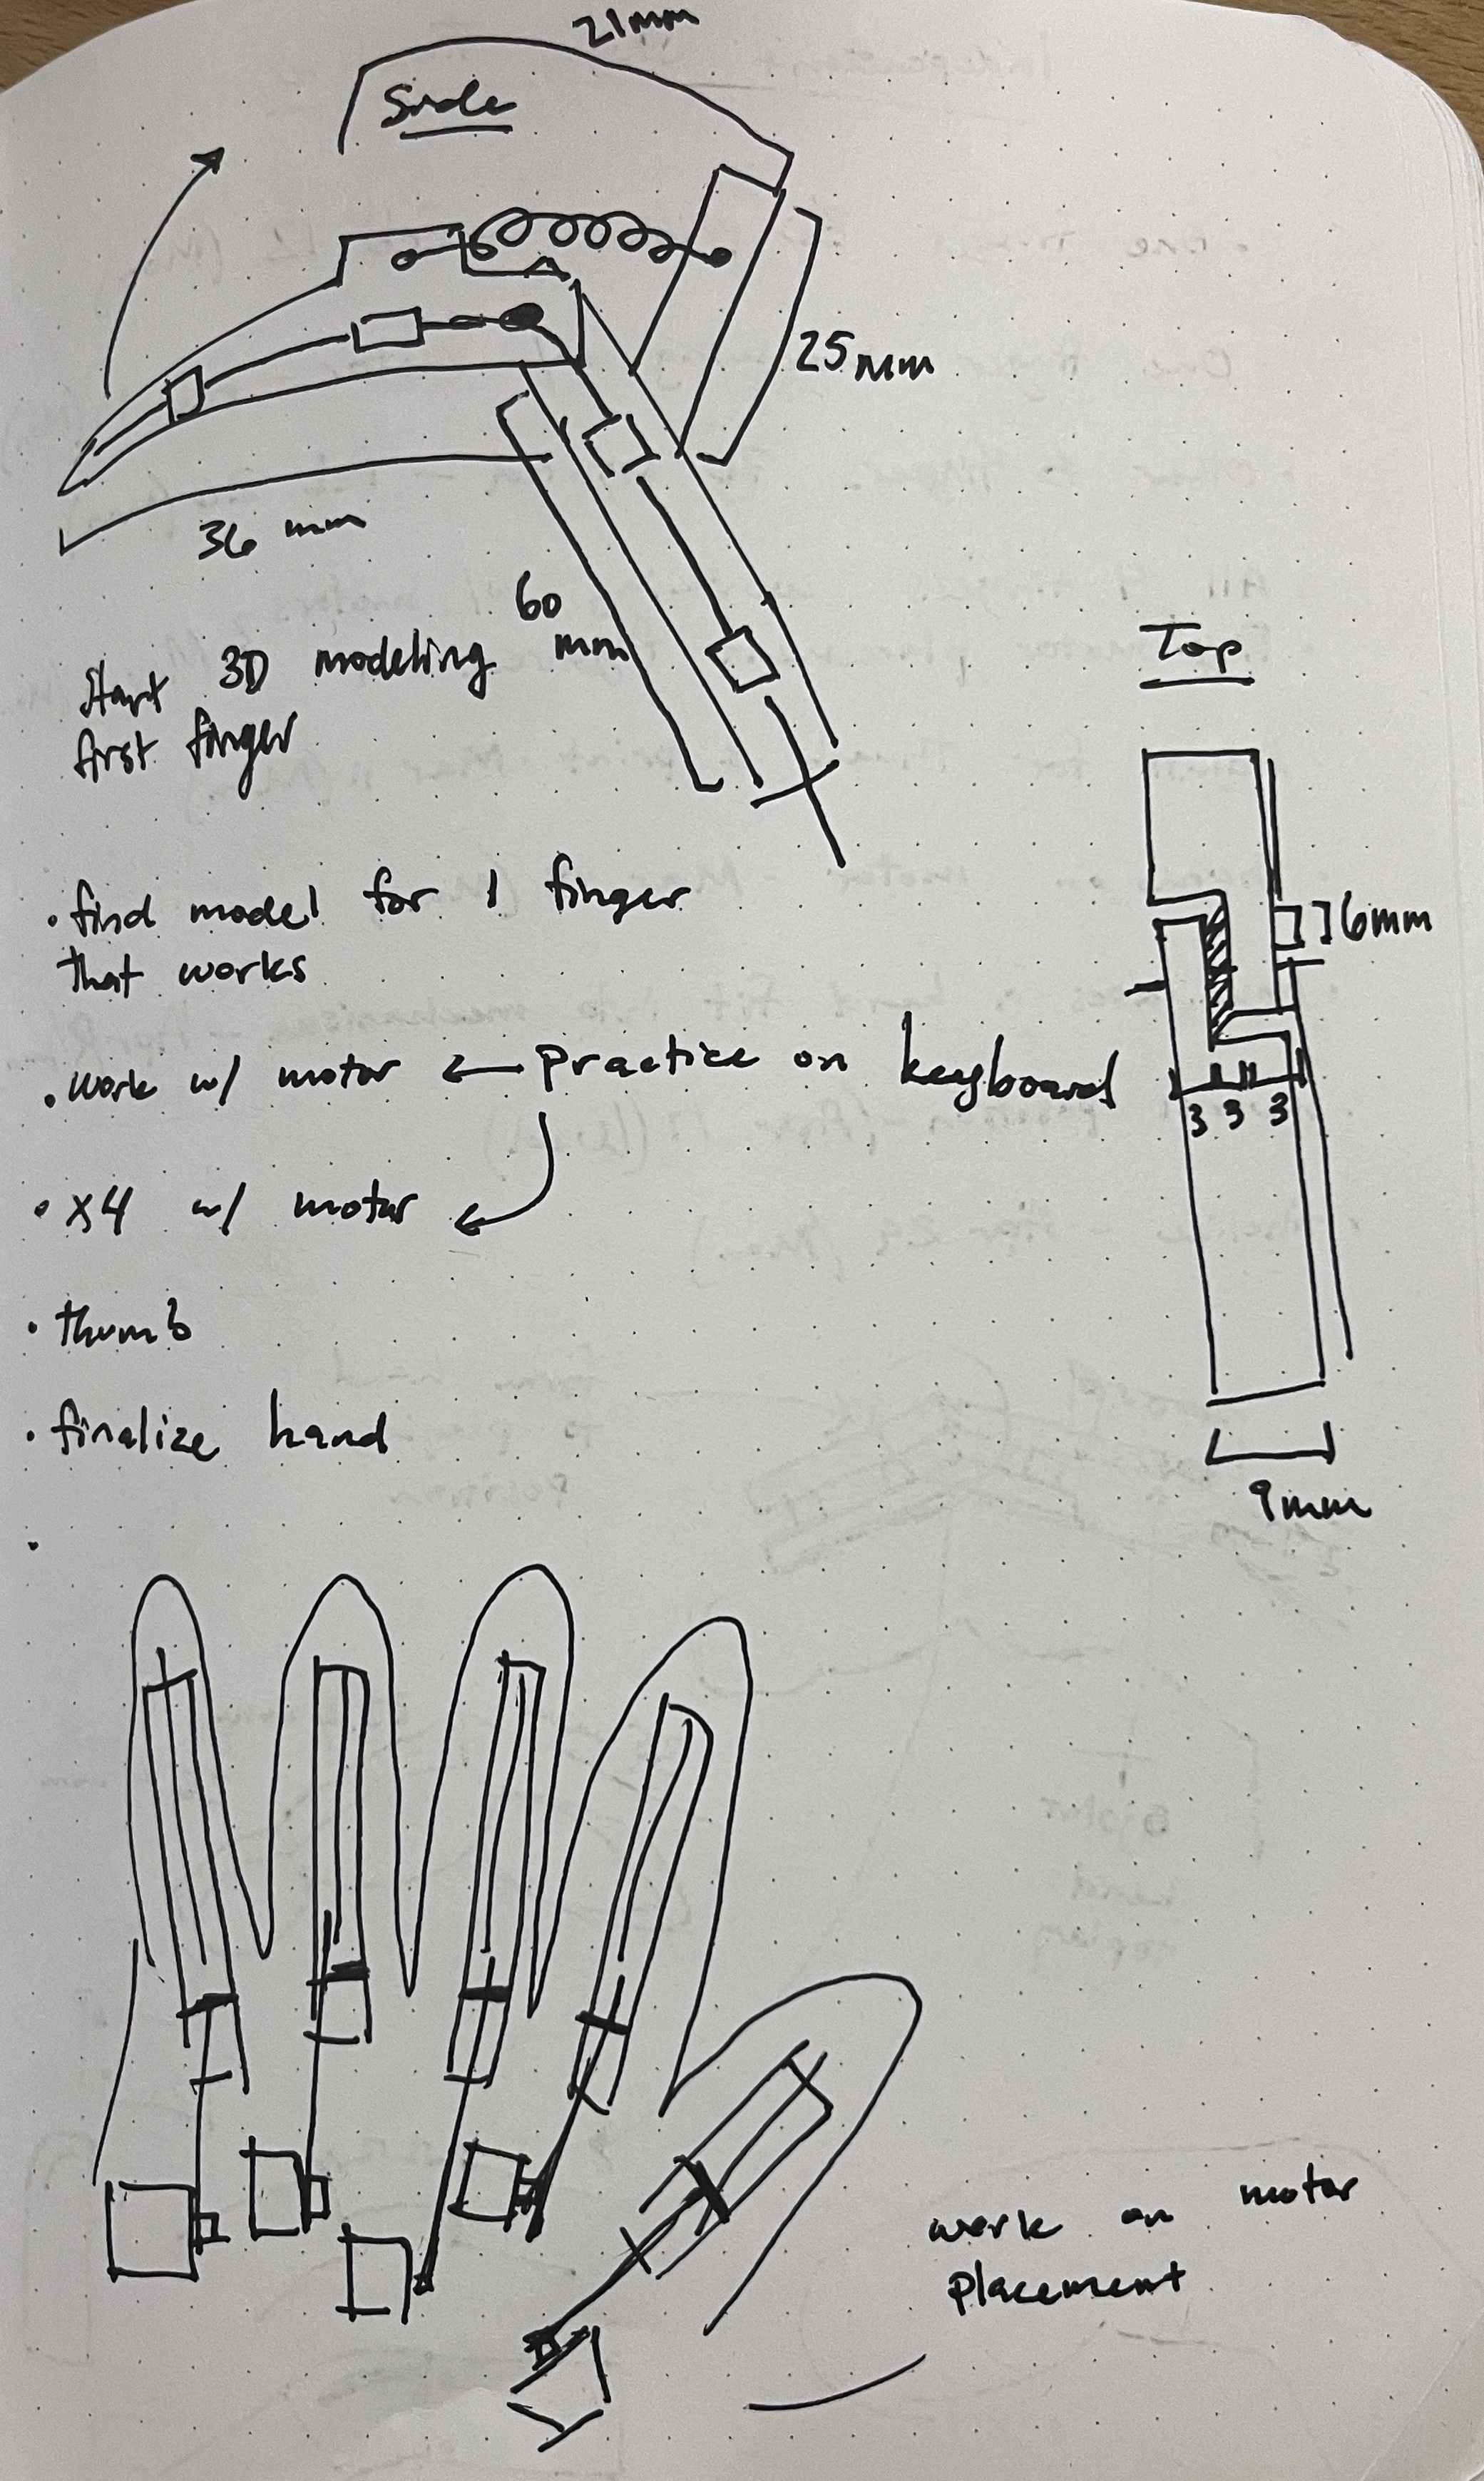 21mm
Side
25mm
36 mm
60
mm
Start 3D modeling
first finger
Top
6mm
3 3 3
9mm
• find model for 1 finger
that works
• work w/ motor ← practice on keyboard
• x4 w/ motor
• thumb
• finalize hand
•
work on motor
placement